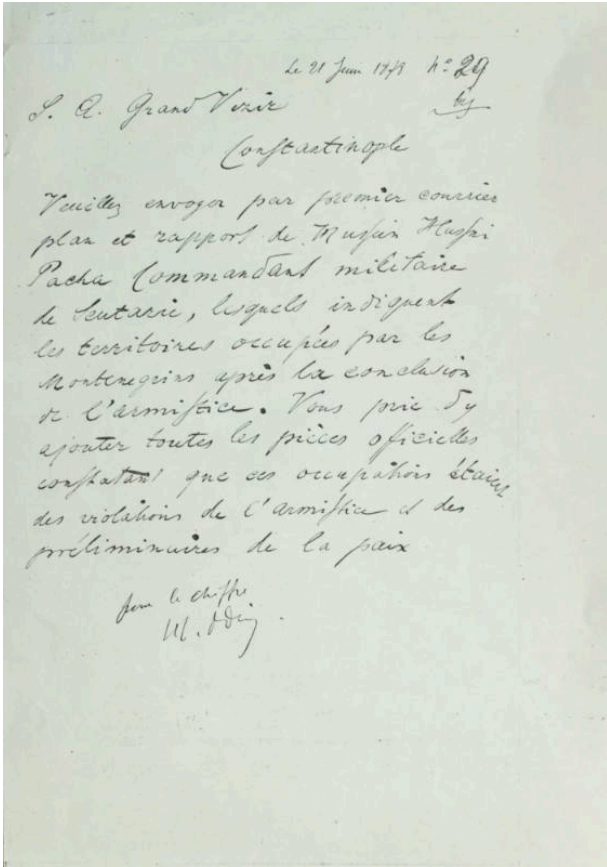 Le 21 Juin 1878 Nº 29
S. A. Grand Vizir
Constantinople
Veuillez envoyer par premier courrier
plan et rapport de Hussein Husni
Pacha Commandant militaire
de Scutarie, lesquels indiquent
les territoires occupées par les
Montenegrins après la conclusion
de l'armistice. Vous prie d'y
ajouter toutes les pièces officielles
constatant que ces occupations étaient
des violations de l'armistice et des
préliminaires de la paix
pour le chiffre